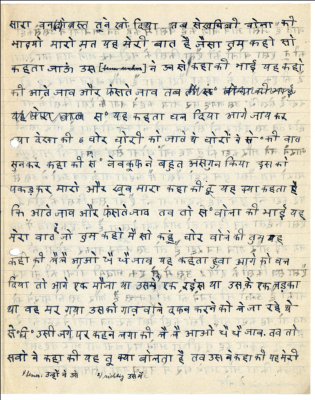 सारा बन्दोबस्त तूने खो दिया तब सेखचिल्ली बोला की
भाइयो मारो मत यह मेरी बात है जैसा तुम कहो सो
कहता जाउं उस ने उससे कहा की भाई यह कहो
की आते जाव और फंसते जाव तब
यह मेरा स॰ यह कहता चल दिया आगे जायकर
क्या देखा की ६ चोर चोरी को जावे थे चोरों ने स॰ की बात
सुनकर कहा की स॰ बेवकूफ ने बहुत असगुन किया इसको
पकड़कर मारो और खूब मारा कहा की तू यह क्या कहता है
कि आते जाव और फंसते जाव तब तो स॰ बोला की भाई यह
मेरा बात जो तुम कहो मैं सो कहूं चोर बोले की तुम यह
कहो की लै लै आओ धै धै जाव यह कहता हुवा आगे को चल
दिया तो आगे एक मौजा था उसमें एक रईस था उसके एक लड़का
था वह मर गया उसको गांव वाले दफन करने को ले जा रहे थे
उसी जगे पर कहने लगा की लै लै आओ धै धै जाव तब तो
सबों ने कहा की यह तू क्या बोलता है तब उसने कहा की यह मेरी
उन्होंने उसे उसमें